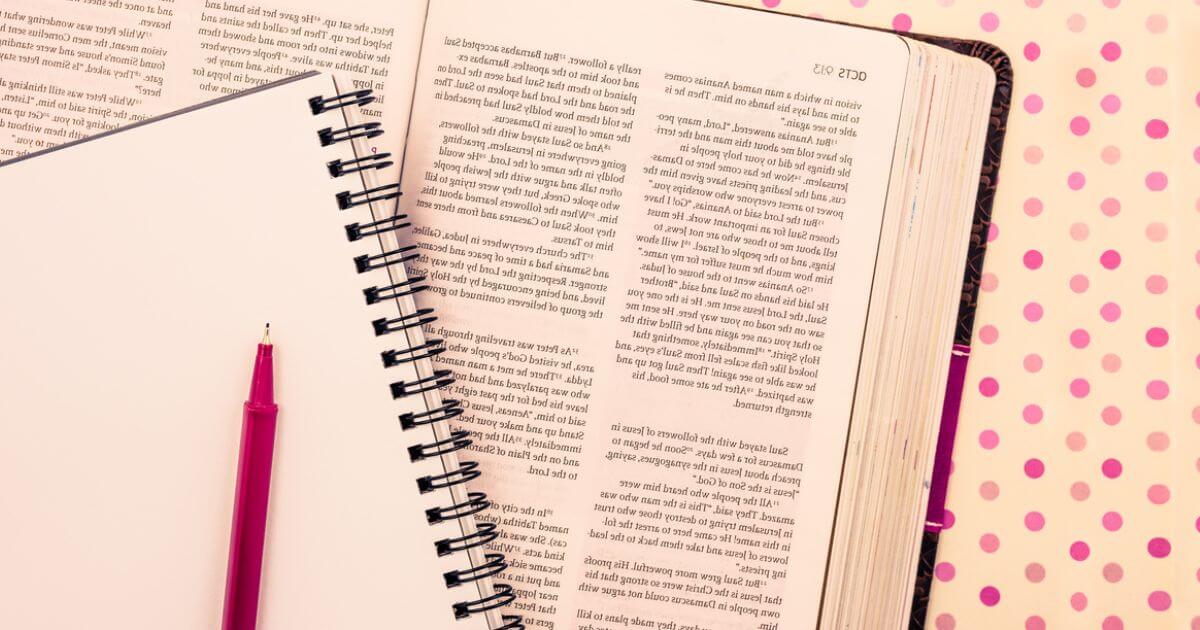 ACTS 9:13
vision in which a man named Ananias comes
in and lays his hands on him. Then he is
able to see again."
¹³But Ananias answered, "Lord, many peo-
ple have told me about this man and the terri-
ble things he did to your holy people in
Jerusalem. ¹⁴Now he has come here to Damas-
cus, and the leading priests have given him the
power to arrest everyone who worships you."
¹⁵But the Lord said to Ananias, "Go! I have
chosen Saul for an important work. He must
tell about me to those who are not Jews, to
kings, and to the people of Israel. ¹⁶I will show
him how much he must suffer for my name."
¹⁷So Ananias went to the house of Judas.
He laid his hands on Saul and said, "Brother
Saul, the Lord Jesus sent me. He is the one you
saw on the road on your way here. He sent me
so that you can see again and be filled with the
Holy Spirit." ¹⁸Immediately, something that
looked like fish scales fell from Saul's eyes, and
he was able to see again! Then Saul got up and
was baptized. ¹⁹After he ate some food, his
strength returned.
Saul stayed with the followers of Jesus in
Damascus for a few days. ²⁰Soon he began to
preach about Jesus in the synagogues, saying,
"Jesus is the Son of God."
²¹All the people who heard him were
amazed. They said, "This is the man who was
in Jerusalem trying to destroy those who trust
in this name! He came here to arrest the fol-
lowers of Jesus and take them back to the lead-
ing priests."
²²But Saul grew more powerful. His proofs
that Jesus is the Christ were so strong that his
own people in Damascus could not argue with
him.
days, they made plans to kill
really a follower. ²⁷But Barnabas accepted Saul
and took him to the apostles. Barnabas ex-
plained to them that Saul had seen the Lord on
the road and the Lord had spoken to Saul. Then
he told them how boldly Saul had preached in
the name of Jesus in Damascus.
²⁸And so Saul stayed with the followers,
going everywhere in Jerusalem, preaching
boldly in the name of the Lord. ²⁹He would
often talk and argue with the Jewish people
who spoke Greek, but they were trying to kill
him. ³⁰When the followers learned about this,
they took Saul to Caesarea and from there sent
him to Tarsus.
³¹The church everywhere in Judea, Galilee,
and Samaria had a time of peace and became
stronger. Respecting the Lord by the way they
lived, and being encouraged by the Holy Spirit,
the group of believers continued to grow
³²As Peter was traveling through all
area, he visited God's people who
Lydda. ³³There he met a man named
who was paralyzed and had not
leave his bed for the past eight
said to him, "Aeneas, Jesus
Stand up and make your bed
immediately. ³⁵All the
and on the Plain of Sharon
to the Lord.
³⁶In the city of
named Tabitha (whos
cas). She was
kind acts. ³⁷While
became sick
and put in a
near Joppa
that Peter
gers to
Peter, she sat up. ⁴¹He gave her his hand and
helped her up. Then he called the saints and
the widows into the room and showed them
that Tabitha was alive. ⁴²People everywhere
in Joppa
about this, and many be-
stayed in Joppa for
Simon who
heaven.
¹⁷While Peter was wondering what
vision meant, the men Cornelius sent
found Simon's house and were standing
gate. ¹⁸They asked, "Is Simon Peter
here?"
¹⁹While Peter was still thinking
vision, the Spirit said to him, "Listen,
looking for you. ²⁰Get up and
with them without
to you."